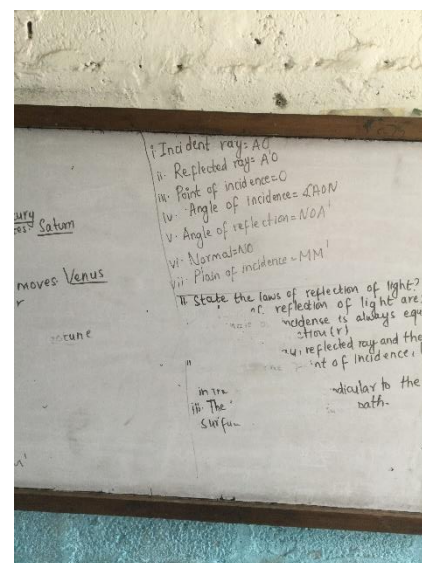 ury
Saturn
moves Venus
r
i. Incident ray= AO
ii. Reflected ray= A'O
iii. Point of incidence=O
iv. Angle of incidence= ∠AON
v. Angle of reflection= NOA'
vi. Normal=NO
vii. Plain of incidence=MM'
11 State the laws of reflection of light?
reflection of light are:
ncidense is always equ
ction(r)
reflected ray and the
nt of incidence,
in
dicular to the
iii. The
path.
Surfa